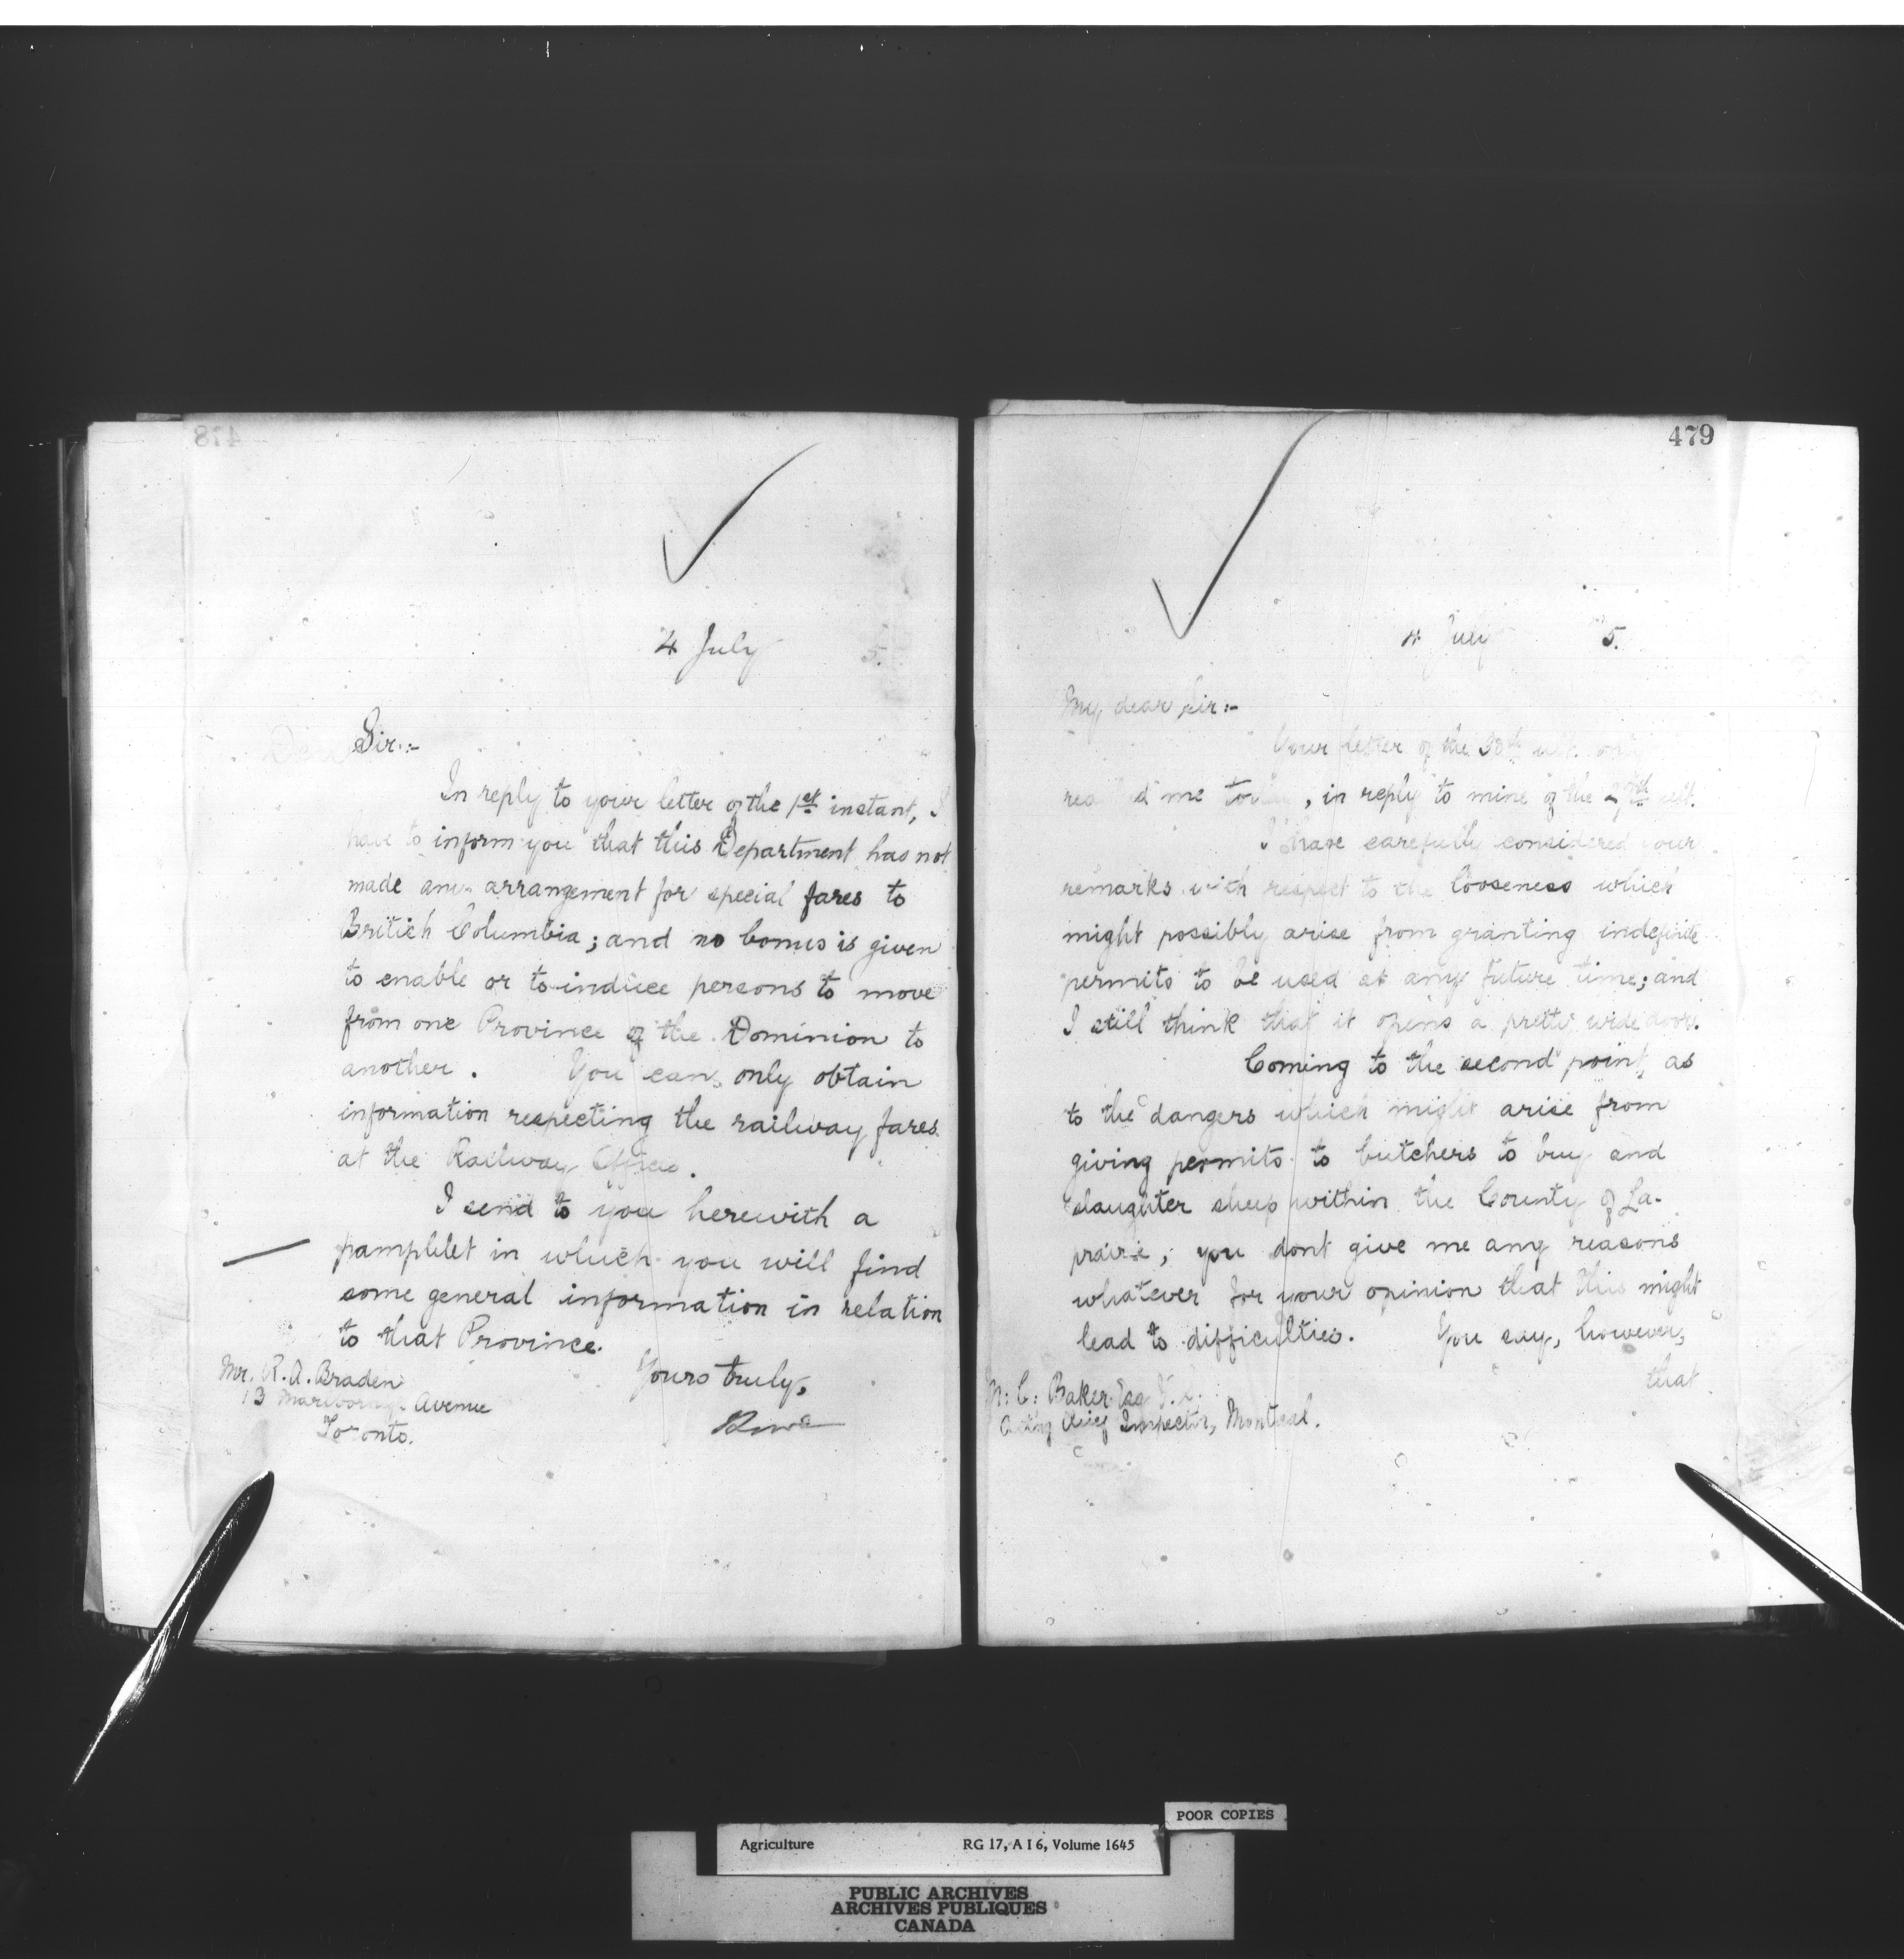 478
4 July 5.
Sir:-
In reply to your letter of the 1st instant, I
have to inform you that this Department has not
made any arrangement for special fares to
British Columbia; and no bonus is given
to enable or to induce persons to move
from one Province of the Dominion to
another. You can only obtain
information respecting the railway fares
at the Railway Offices.
I send to you herewith a
pamphlet in which you will find
some general information in relation
to that Province.
Yours truly,
Mr. R. A. Braden
13 Avenue
Toronto.
479
4 July 5.
My dear Sir:-
Your letter of the 30th ult. only
reached me today, in reply to mine of the ult.
I have carefully considered your
remarks with respect to the looseness which
might possibly arise from granting indefinite
permits to be used at any future time; and
I still think that it opens a pretty wide door.
Coming to the second point, as
to the dangers which might arise from
giving permits to butchers to buy and
slaughter sheep within the County of La-
prairie, you dont give me any reasons
whatever for your opinion that this might
lead to difficulties. You say, however,
that
M. C. Baker Esq
Acting Chief Inspector, Montreal.
POOR COPIES
Agriculture RG 17, A I 6, Volume 1645
PUBLIC ARCHIVES
ARCHIVES PUBLIQUES
CANADA